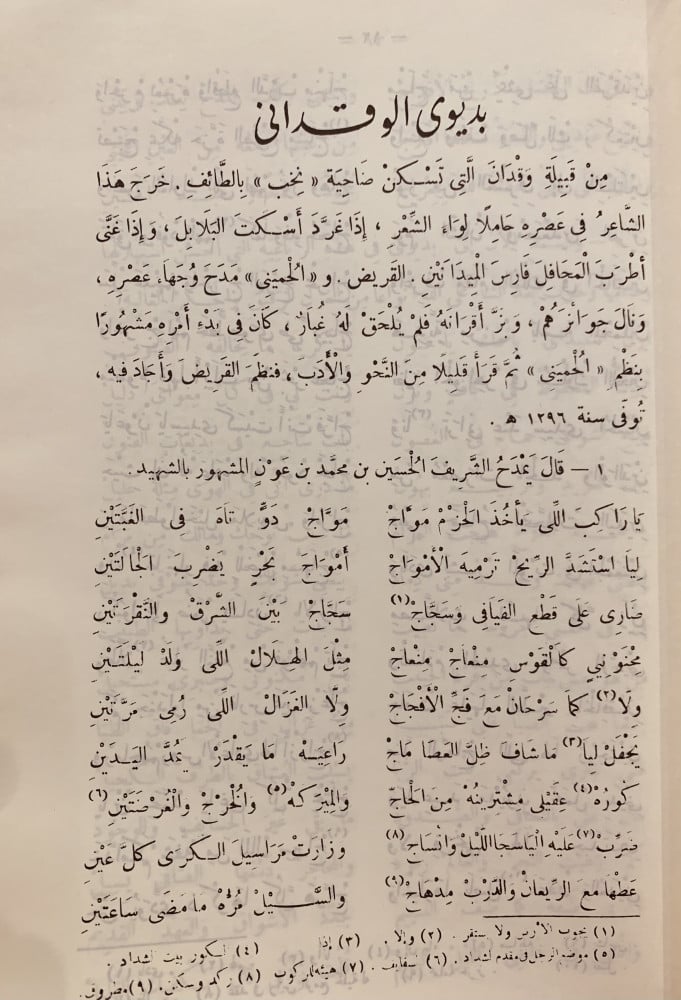 بديوى الوقدانى
مِنْ قَبِيلَةِ وَقْدَانَ الَّتِى تَسْكنُ ضَاحِيَة « نِخب » بِالطَّائِفِ . خَرَجَ هَذَا
الشَّاعِرُ فِى عَصْرِهِ حَامِلًا لِوَاءَ الشِّعْرِ ، إِذَا غَرَّدَ أَسْكتَ البَلَابِلَ ، وَإِذَا غَنَّى
أطْرَبَ الْمَحَافِلَ فَارِسَ الْمِيدَانَيْنِ . القَرِيض . و « الْحُمَينِى » مَدَحَ وُجَهَاءَ عَصْرِهِ ،
وَنَالَ جَوَائِزَهُمْ ، وَبَزَّ أَقْرَانَهُ فَلَمْ يُلْحَقْ لَهُ غُبَارٌ ، كَانَ فِى بَدْءِ أَمْرِهِ مَشْهُورًا
بِنَظْمِ « الْحُمَينِى » ثُمَّ قَرَأَ قَلِيلًا مِنَ النَّحْوِ والْأَدَبَ ، فنظَمَ القَرِيضَ وَأَجَادَ فيه ،
تُوفّى سنة ١٢٩٦ هـ .
١ — قَالَ يَمْدَحُ الشَّرِيفَ الْحُسَين بن محمَّد بن عَوْنٍ المشهور بالشهيد .
يَا رَاكِبَ اللِى يَأخُذَ الْحَزْمْ مَوَّاجْ مَوَّاجْ دَوٍّ تَاهَ فِى الغَبَّتَيْنِ
لِيَا اسْتَشَدَّ الرِّيحْ تَرْمِيهَ الْأَمْوَاجْ أَمْوَاجَ بَحْرٍ يَضْرِبَ الْجَالَتَيْنِ
ضَارِى عَلَى قَطْعِ الفَيَافِى وَسَجَّاجْ(١) سَجَّاجْ بَيْنَ الشَّرْقْ والنَّقْرَتَيْنِ
مِحْنَوْنِيٍ كَالْقَوْسِ مِنْعَاجْ مِنْعَاجْ مِثْلَ الهِلَالْ اللى وَلَدْ لَيْلَتَيْنِ
وِلَا(٢) كمَا سَرْحَانْ مَعَ فَجِّ الْأَفْجَاجْ وِلَّا الغَزَالْ اللى رُمِى مَرَّتَيْنِ
يَجْفَلْ لِيَا(٣) مَا شَافَ ظِلَّ العَصَا مَاجْ رَاعِيَهْ مَا يَقْدَرْ يُمُدَّ اليَدَيْنِ
كُورُهْ(٤) عِقَيْلِى مِشْتِرِينُهْ مِنَ الْحَاجّ والْمِيْرَكَهْ(٥) والْخُرْجْ والْغُرْضَتَيْنِ(٦)
ضَرِّبْ(٧) عَلَيْهِ الْيَاسَجَا اللَّيْلْ وَانْسَاجِ(٨) وزَارَتْ مَرَاسِيلَ الـكَرَى كلَّ عَيْنِ
عَطْهَا مَعَ الرِّيعَانْ والدَّرْبْ مِدْهَاجْ(٩) والسَّـيْلْ مُرُّهْ مَا مَضَى سَاعَتَيْنِ
(١) يجوب الأرض ولا يستقر . (٢) وإلا . (٣) إذا (٤) الكور بيت الشداد .
(٥) موضع الرجل فى مقدم الشداد . (٦) سفايف . (٧) هيئه للركوب (٨) ركد وسكن . (٩) مطروف .